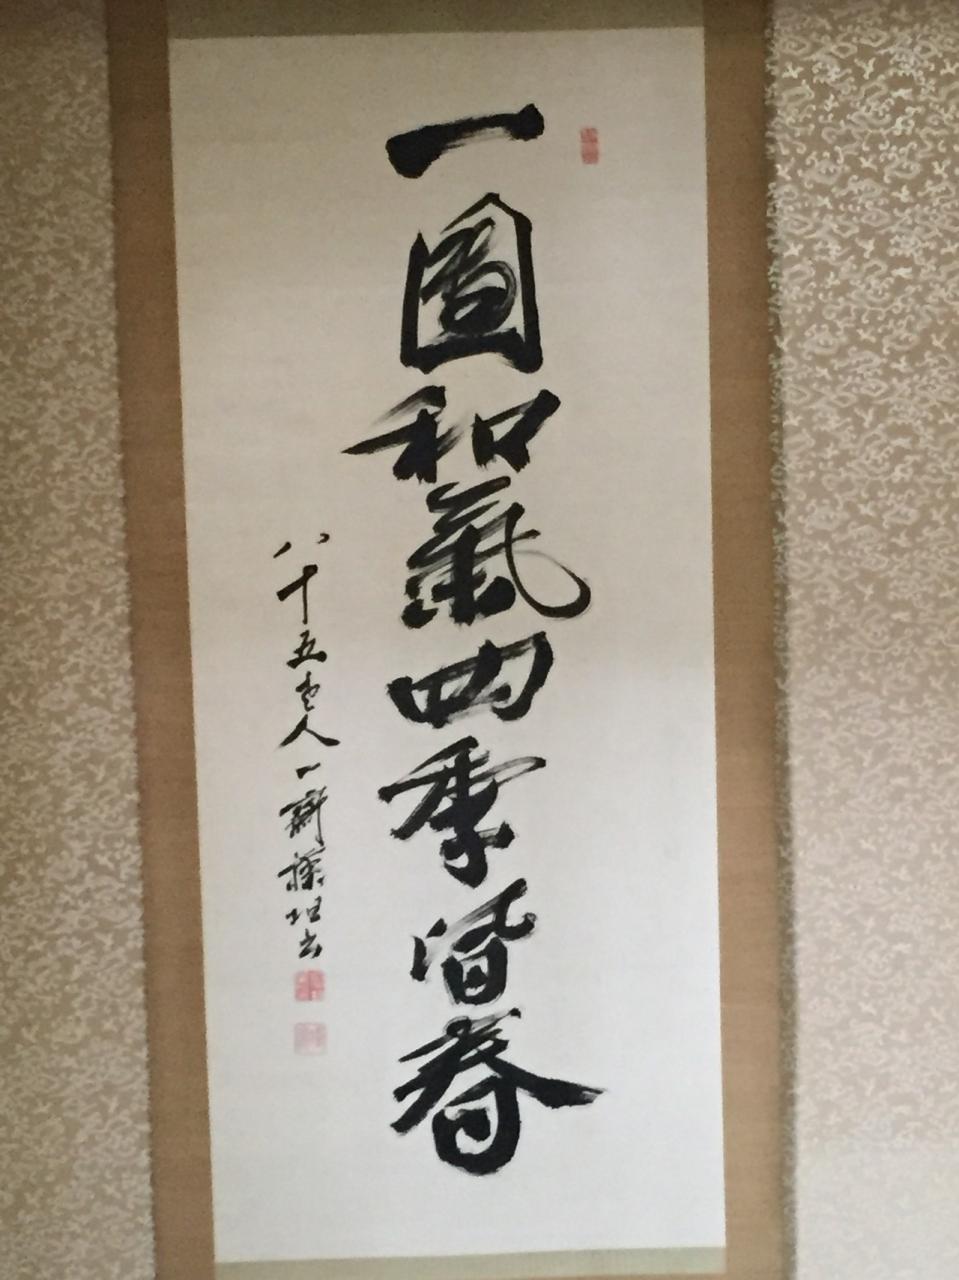 一團和氣四季皆春
八十五老人一齋操坦書